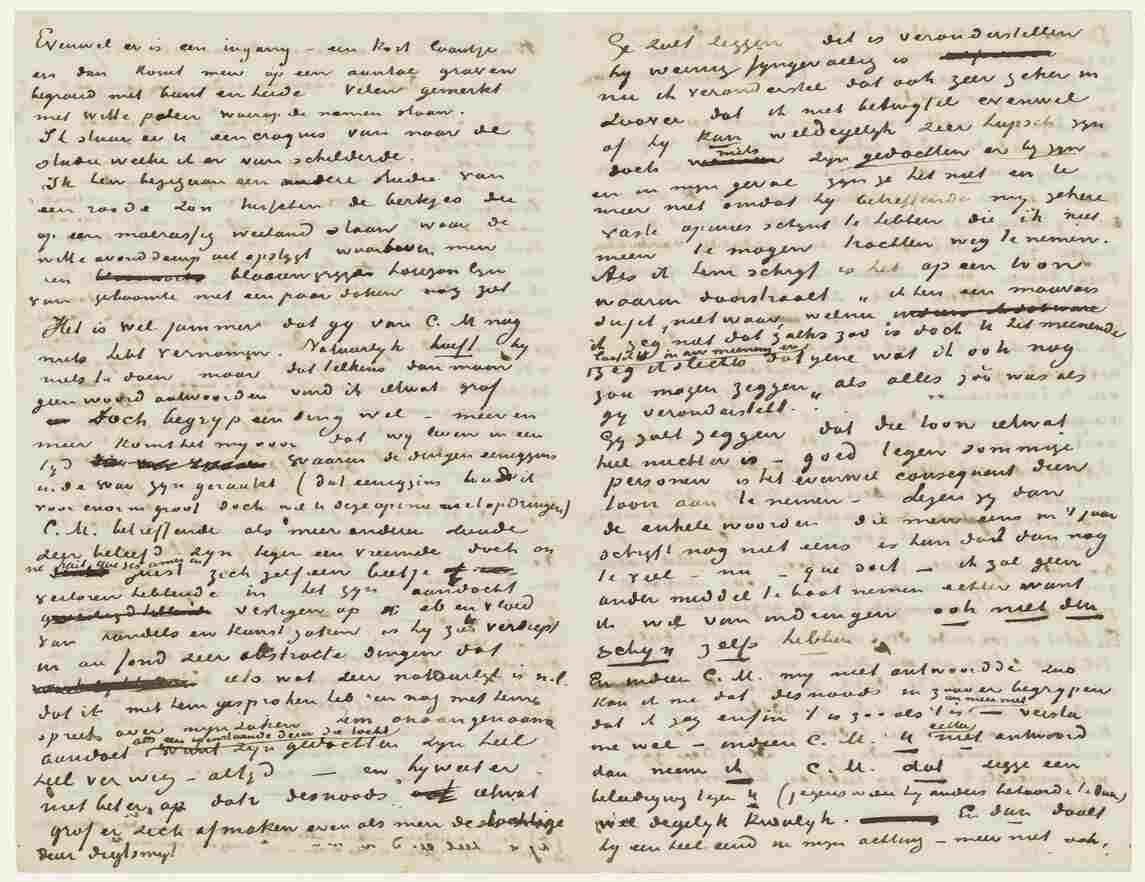 Evenwel er is een ingang – een kort laantje
en dan komt men op een aantal graven
begroeid met bunt en heide Velen gemerkt
met witte palen waarop de namen staan.
Ik stuur er U een croquis van naar de
studie welke ik er van schilderde.
Ik ben bezig aan een andere studie van
een roode zon tusschen de berkjes die
op een moerassig weiland staan waar de
witte avonddamp uit opstijgt waarboven men
een blaauwgrijze horizonlijn
van geboomte met een paar daken nog ziet
Het is wel jammer dat gij van C.M. nog
niets hebt vernomen. Natuurlijk hoeft hij
niets te doen maar dat telkens dan maar
geen woord antwoorden vind ik ietwat grof
– Doch begrijp een ding wel – meer en
meer komt het mij voor dat wij leven in een
tijd waarin de dingen eenigzins
in de war zijn geraakt (dat eenigzins houd ik
voor enorm groot doch wil U deze opinie niet opdringen)
C.M. betreffende als meer andere
zeer beleefd zijn tegen een vreemde doch en
ne fait que ses amis zich zelf een beetje
verloren hebbende in het zijn aandacht
vestigen op eb en vloed
van handels en kunst zaken is hij zóó verdiept
in au fond zeer abstracte dingen dat
iets wat zeer natuurlijk is n.l.
dat ik met hem gesproken heb en nog met hem
spreek over mijn zaken hem onaangenaam
aandoet als een domslaande deur die tocht
want zijn gedachten zijn heel
heel ver weg – altijd – en hij weet er
niet beter op dat desnoods ietwat
grof er zich afmaken even als men de
deur digtsmijt
Ge zult zeggen dit is veronderstellen
hij weinig fijngevoelig is
nu ik veronderstel dat ook zeer zeker in
zoover dat ik niet betwijfel evenwel
of hij kan weldegelijk zeer hupsch zijn
doch mits zijn gedachten er bij zijn
en in mijn geval zijn ze het niet en te
meer niet omdat hij betreffende mij zekere
vaste opinies schijnt te hebben die ik niet
meen te mogen trachten weg te nemen.
Als ik hem schrijf is het op een toon
waarin doorstraalt „ik ben een mauvais
sujet, niet waar, welnu
ik zeg niet dat zulks zoo is doch U het meenende
laat ik U in uw meening en
zeg ik slechts datgene wat ik ook nog
zou mogen zeggen als alles zóó was als
gij veronderstelt.”
Gij zult zeggen dat die toon ietwat
heel nuchter is – goed tegen sommige
personen is het evenwel consequent dien
toon aan te nemen – Lezen zij dan
de enkele woorden die men eens in 't jaar
schrijft nog niet eens is hun dat dan nog
te veel – nu – que soit – ik zal geen
ander middel te baat nemen echter want
ik wil van indringen ook niet den
schijn zelfs hebben
En indien C.M. mij niet antwoordde zoo
kan ik me dat desnoods in zoover begrijpen
dat ik zeg enfin 't is zoo als 't is – versta
me wel – indien C.M. U echter niet antwoord
dan neem ik C.M. dat zegge een
beleediging tegen U (jegens wien hij anders behoorde te doen)
wel degelijk kwalijk. En dan daalt
hij een heel eind in mijn achting – meer niet ook.